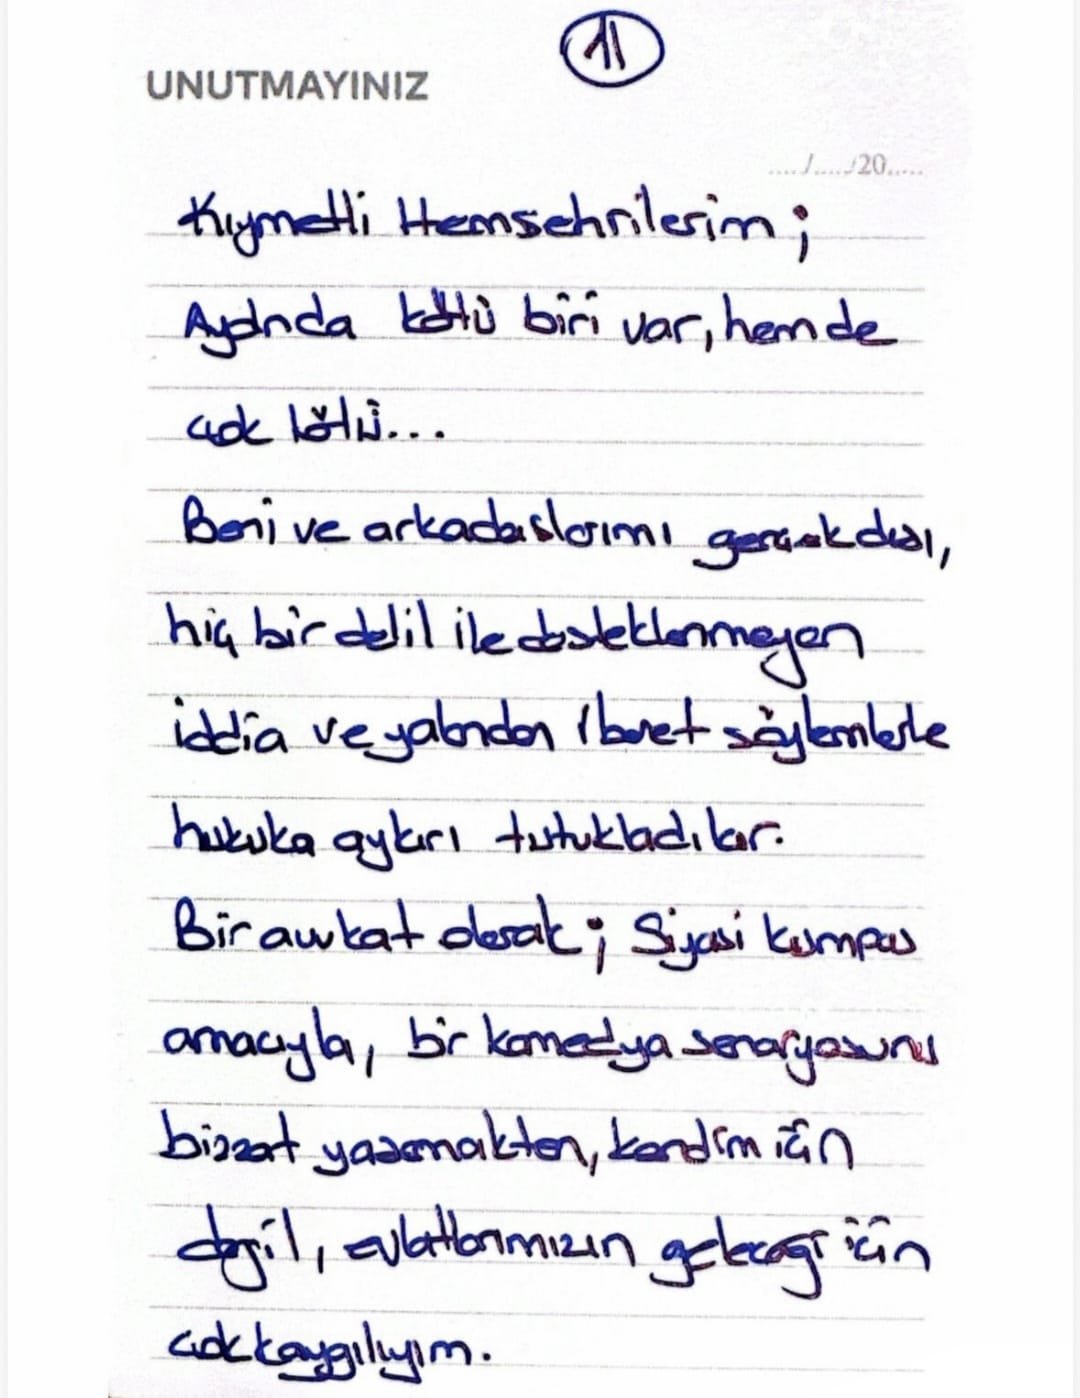 11
UNUTMAYINIZ
..../..../20.....
Kıymetli Hemşehrilerim;
Aydında kötü biri var, hemde
çok kötü...
Beni ve arkadaşlarımı gerçek dışı,
hiç bir delil ile desteklenmeyen
iddia ve yalandan ibaret söylemlerle
hukuka aykırı tutukladılar.
Bir avukat olarak; Siyasi kumpas
amacıyla, bir komedya senaryosunu
bizzat yaşamaktan, kendim için
değil, evlatlarımızın geleceği için
çok kaygılıyım.